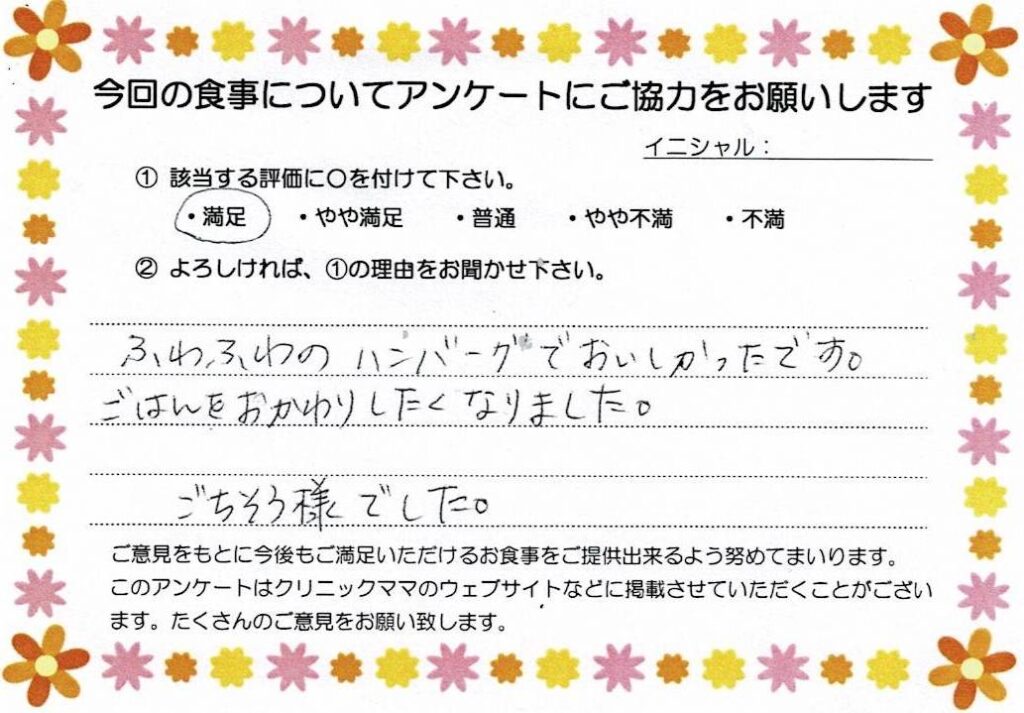 今回の食事についてアンケートにご協力をお願いします
イニシャル：
① 該当する評価に〇を付けて下さい。
・満足 ・やや満足 ・普通 ・やや不満 ・不満
② よろしければ、①の理由をお聞かせ下さい。
ふわふわの ハンバーグでおいしかったです。
ごはんをおかわりしたくなりました。
ごちそう様でした。
ご意見をもとに今後もご満足いただけるお食事をご提供出来るよう努めてまいります。
このアンケートはクリニックママのウェブサイトなどに掲載させていただくことがござい
ます。たくさんのご意見をお願い致します。